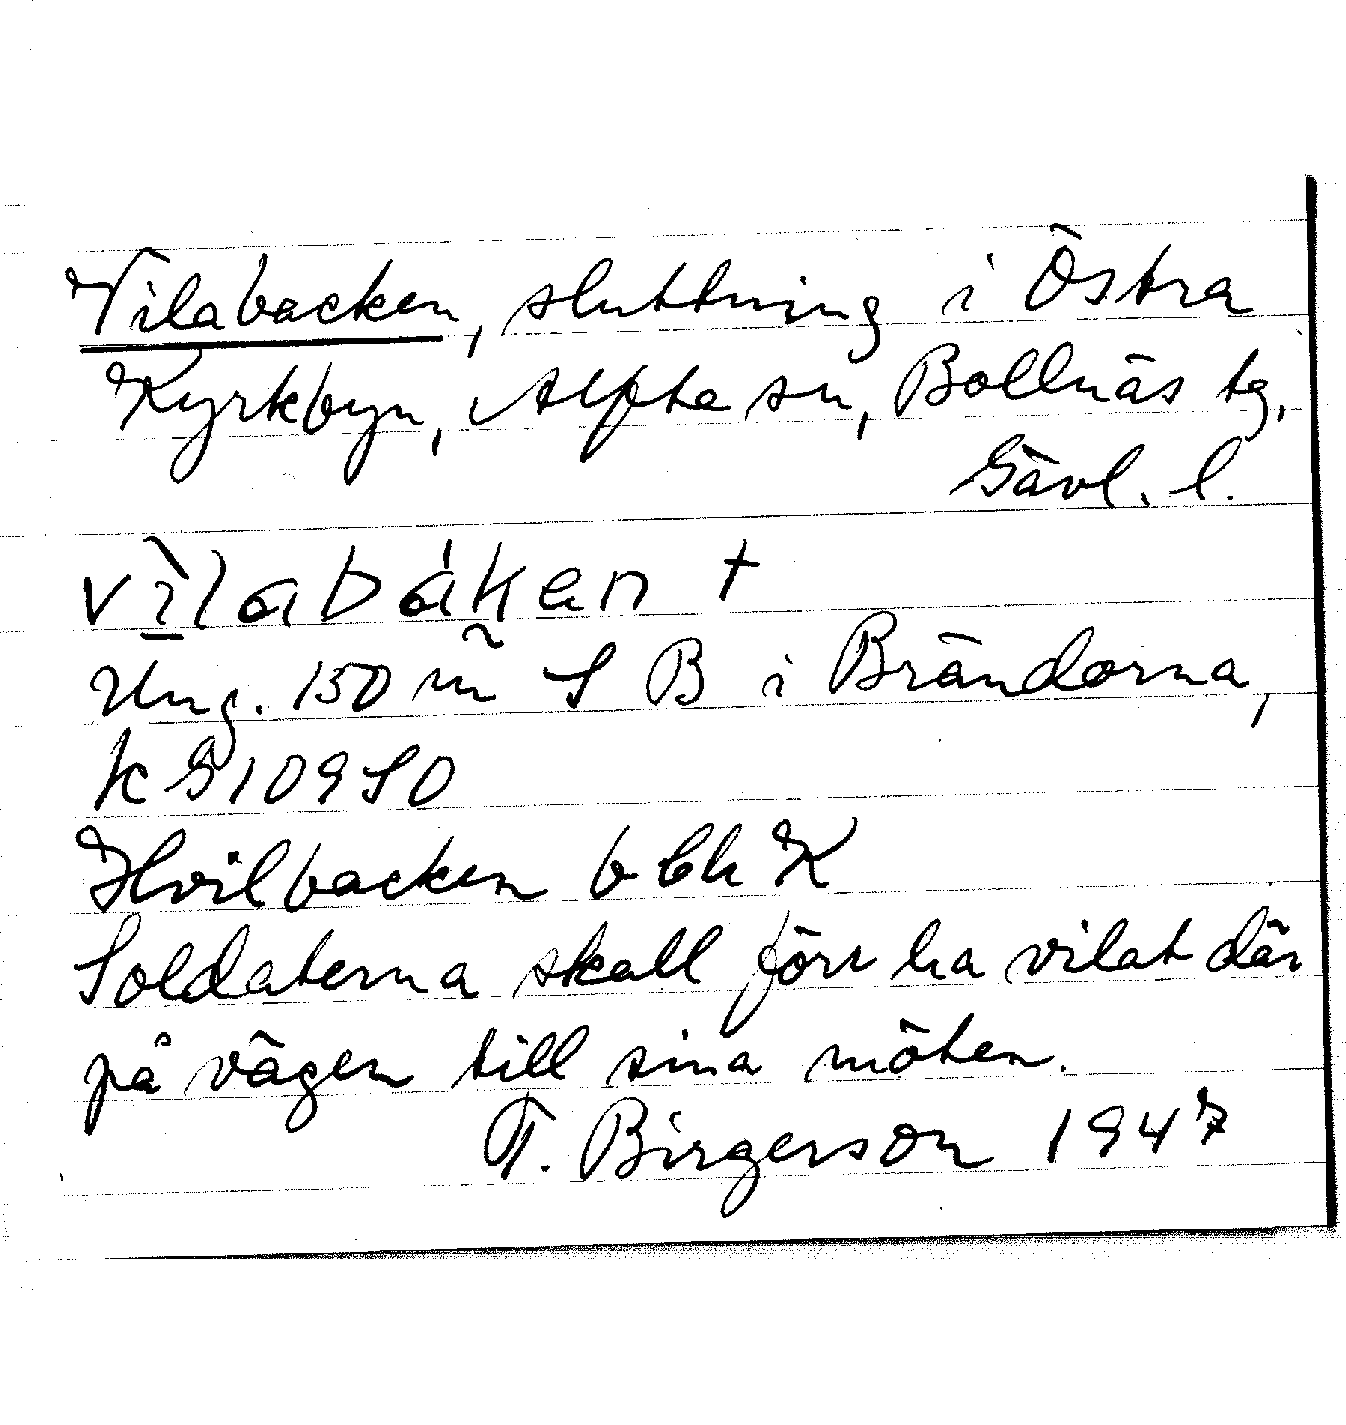 Vilabacken, sluttning i Östra
Kyrkbyn, Alfta sn, Bollnäs tg,
Gävl. l.
vìlabáken +
Ung. 150 m S B i Brändorna,
k G 109 S O
Hvilbacken b bl K
Soldaterna skall förr ha vilat där
på vägen till sina möten.
T. Birgerson 1947